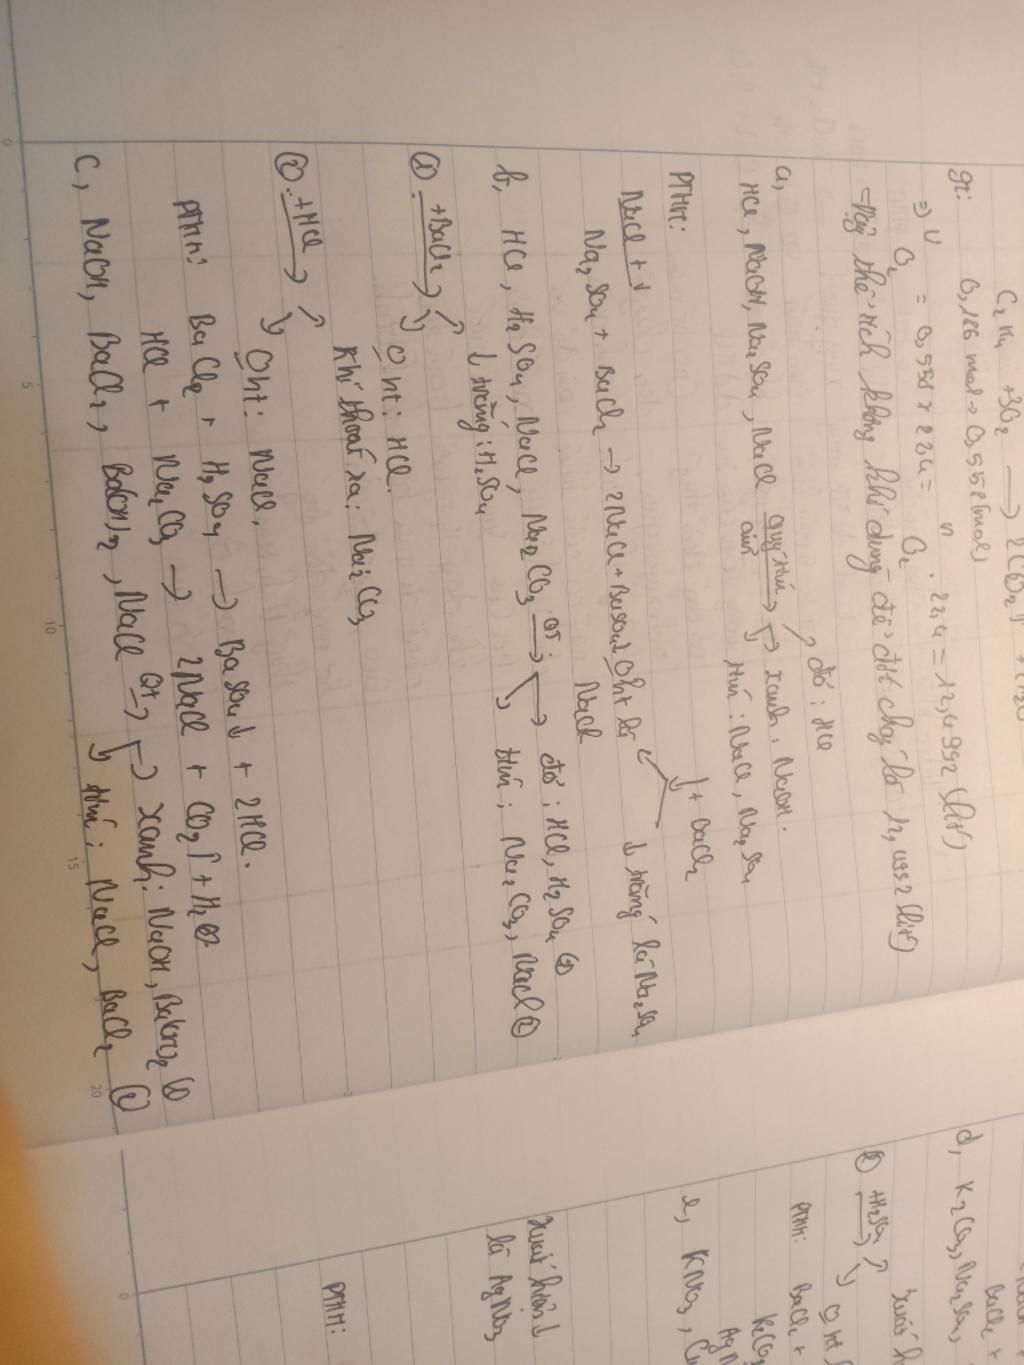 C₂H₄ +3O₂ → 2CO₂
gt: 0,186 mol → 0,558(mol)
=> V O₂ = 0,558 x 22,4 = n O₂ . 22,4 = 12,4992 (lít)
Vậy thể tích không khí dùng để đốt cháy là (lít)
đỏ : HCl
a, HCl, NaOH, Na₂SO₄, NaCl quỳ tím → xanh : NaOH.
ẩm tím : NaCl, Na₂SO₄
PTHH: ↓ + BaCl₂
NaCl + ↓ ↓ trắng là Na₂SO₄
Na₂SO₄ + BaCl₂ → 2NaCl + BaSO₄↓ 0ht là
NaCl
b, HCl, H₂SO₄, NaCl, Na₂CO₃ QT: → đỏ : HCl, H₂SO₄ (1)
tím : Na₂CO₃, NaCl (2)
↓ trắng : H₂SO₄
(1) +BaCl₂ →
0 ht : HCl.
Khí thoát ra : Na₂CO₃
(2) : +HCl →
0ht : NaCl.
PTHH : BaCl₂ + H₂SO₄ → BaSO₄↓ + 2HCl.
HCl + Na₂CO₃ → 2NaCl + CO₂↑ + H₂O
C, NaOH, BaCl₂, Ba(OH)₂, NaCl QT → xanh : NaOH, Ba(OH)₂ (1)
tím : NaCl, BaCl₂ (2)
BaCl₂ +
d, K₂CO₃, Na₂SO₄,
xuất h
+H₂SO₄ →
0 ht
PTHH: BaCl₂ +
K₂CO₃
AgN
e, KNO₃, Cu
xuất hiện ↓
là AgNO₃
PTHH:
0
5
10
15
20
0